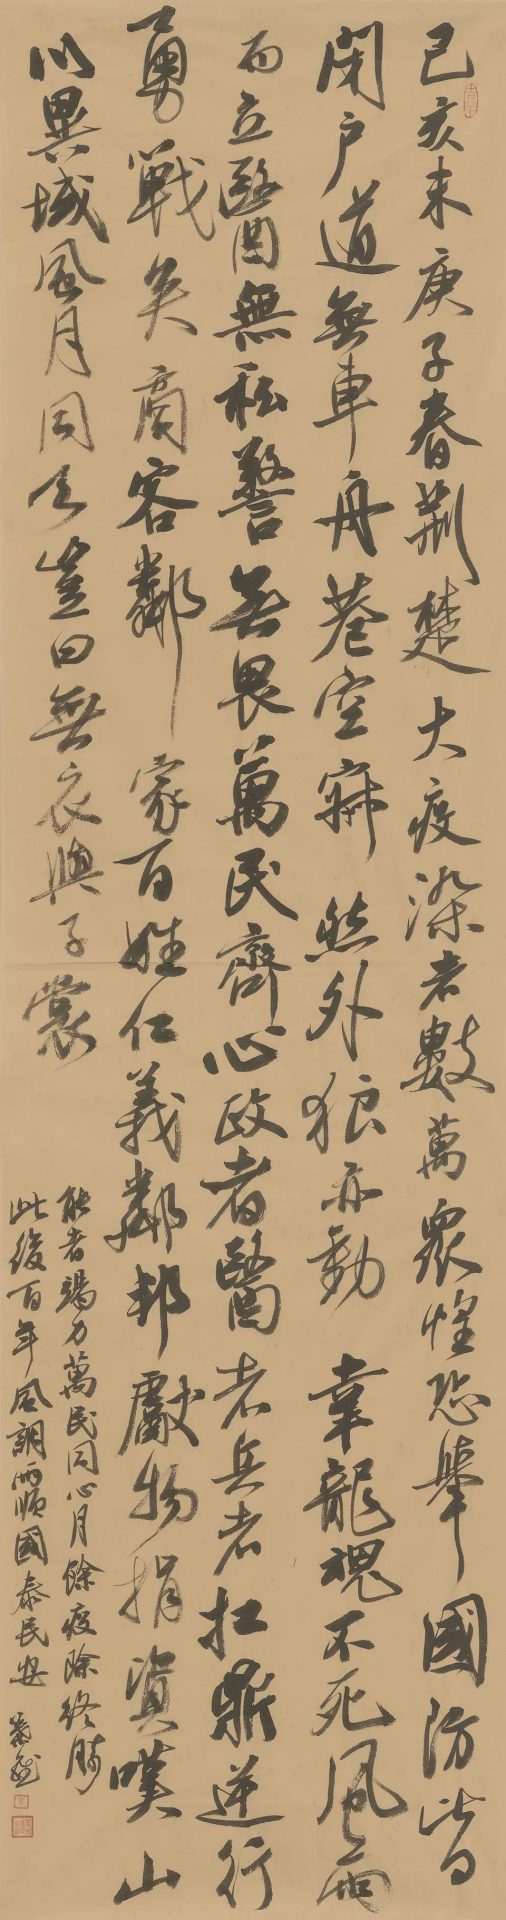 己亥末庚子春荆楚大疫染者數萬眾惶恐舉國防皆
閉户道無車舟巷空寂然外狼亦動幸龍魂不死風雨
而立醫無私警無畏萬民齊心政者醫者兵者扛鼎逆行
勇戰矣商客鄰家百姓仁義鄰邦獻物捐資嘆山
川異域風月同天豈曰無衣與子裳
能者竭力萬民同心月餘疫除終勝
此後百年風調雨順國泰民安